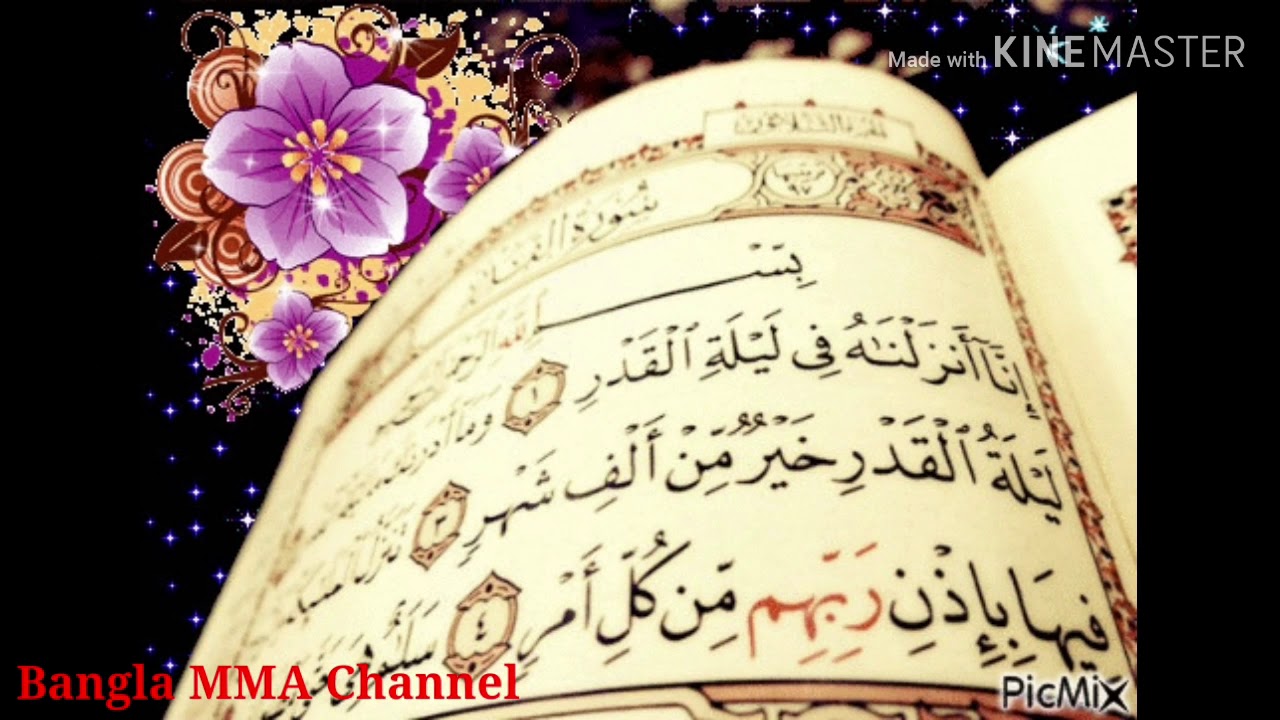 Made with KINEMASTER
سُورَةُ الْقَدْرِ
بِسْــــــمِ ٱللَّهِ الرَّحْمَٰنِ الرَّحِيمِ
إِنَّآ أَنزَلْنَٰهُ فِى لَيْلَةِ ٱلْقَدْرِ ١ وَمَآ أَدْرَىٰكَ
لَيْلَةُ ٱلْقَدْرِ خَيْرٌ مِّنْ أَلْفِ شَهْرٍ ٣ تَنَزَّلُ
فِيهَا بِإِذْنِ رَبِّهِم مِّن كُلِّ أَمْرٍ ٤ سَلَٰمٌ
Bangla MMA Channel
PicMix